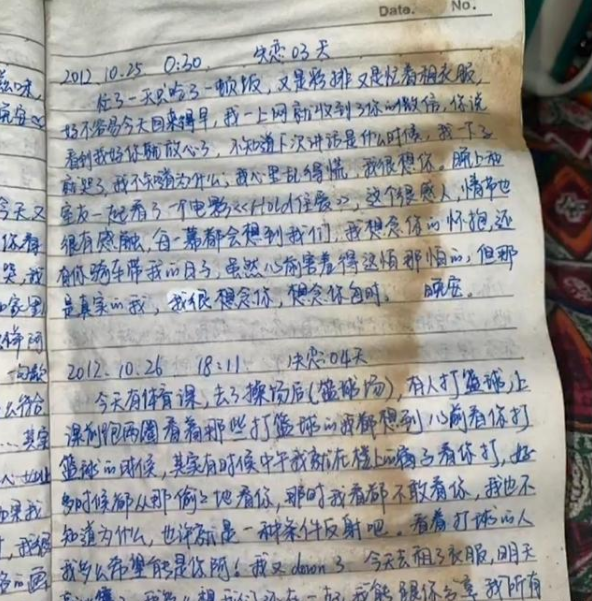 Date. No.
2012.10.25 0:30 失恋03天
忙了一天只吃了一顿饭，又是彩排又是忙着租衣服，
好不容易今天回来得早，我一上网就收到了你的微信，你说
看到我好你就放心了，不知道下次讲话是什么时候，我一下子
就哭了，我不知道为什么，我心里乱得慌，我很想你。晚上和
室友一起看了一个电影<<Hold住爱>>，这个很感人，情节也
很有感触，每一幕都会想到我们，我想念你的怀抱，还
有你骑车带我的日子，虽然以前害羞得这怕那怕的，但那
是真实的我，我很想念你，想念你每时。 晚安。
2012.10.26 18:11 失恋04天
今天有体育课，去了操场后(篮球场)，有人打篮球，上
课前跑两圈看着那些打篮球的我都想到以前看你打
篮球的时候，其实有时候中午我就在楼上的窗子看你打，好
多时候都从那偷偷地看你，那时我看都不敢看你，我也不
知道为什么，也许就是一种条件反射吧。看着打球的人
我多么希望能是你阿！我又down了 今天去租了衣服，明天